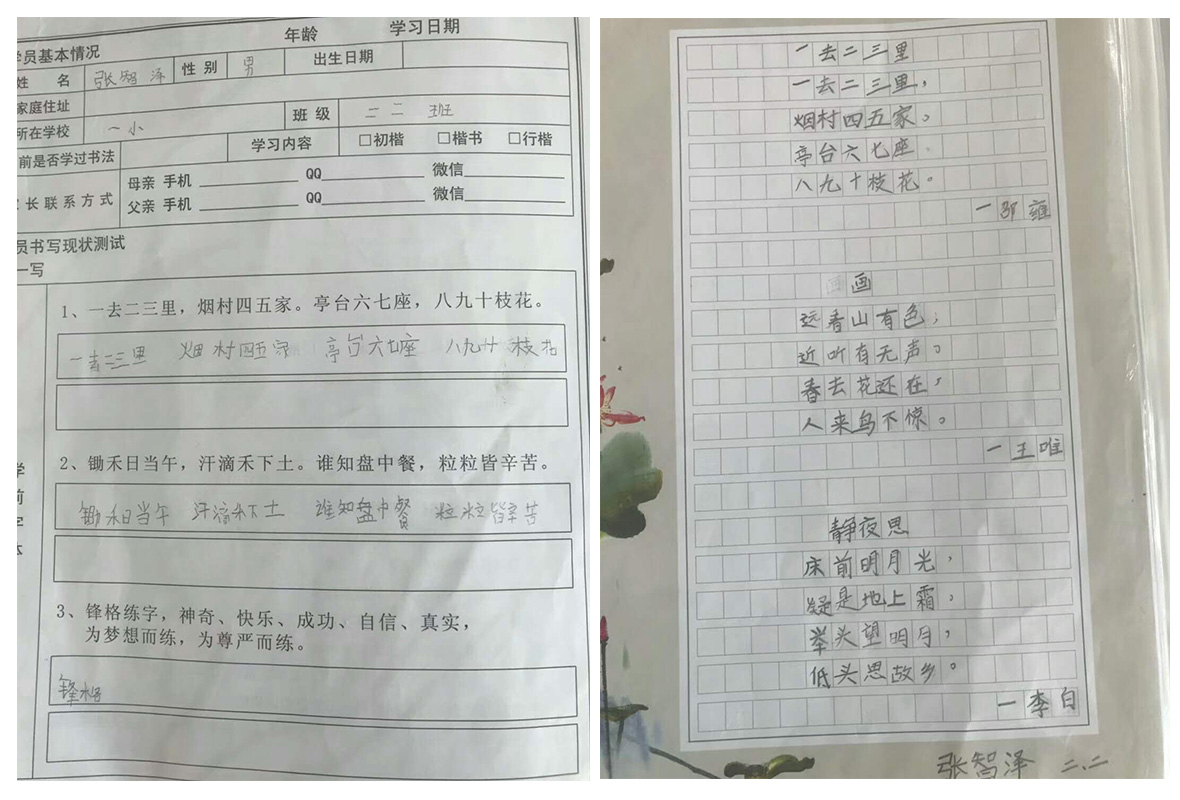 年龄 学习日期
学员基本情况
姓 名 张智泽 性 别 男 出生日期
家庭住址
所在学校 一小 班 级 二 二 班
前是否学过书法 学习内容 □初楷 □楷书 □行楷
长 联 系 方 式 母亲 手机 QQ 微信
父亲 手机 QQ 微信
员书写现状测试
一写
1、一去二三里，烟村四五家。亭台六七座，八九十枝花。
一去二三里 烟村四五家 亭台六七座 八九十枝花
2、锄禾日当午，汗滴禾下土。谁知盘中餐，粒粒皆辛苦。
锄禾日当午 汗滴禾下土 谁知盘中餐 粒粒皆辛苦
学
前
字
本
3、锋格练字，神奇、快乐、成功、自信、真实，
为梦想而练，为尊严而练。
锋格
一去二三里
一去二三里，
烟村四五家。
亭台六七座.
八九十枝花。
一邵雍
画
远看山有色，
近听有无声。
春去花还在，
人来鸟不惊。
一王唯
静夜思
床前明月光，
疑是地上霜，
举头望明月，
低头思故乡。
一李白
张智泽 二.二